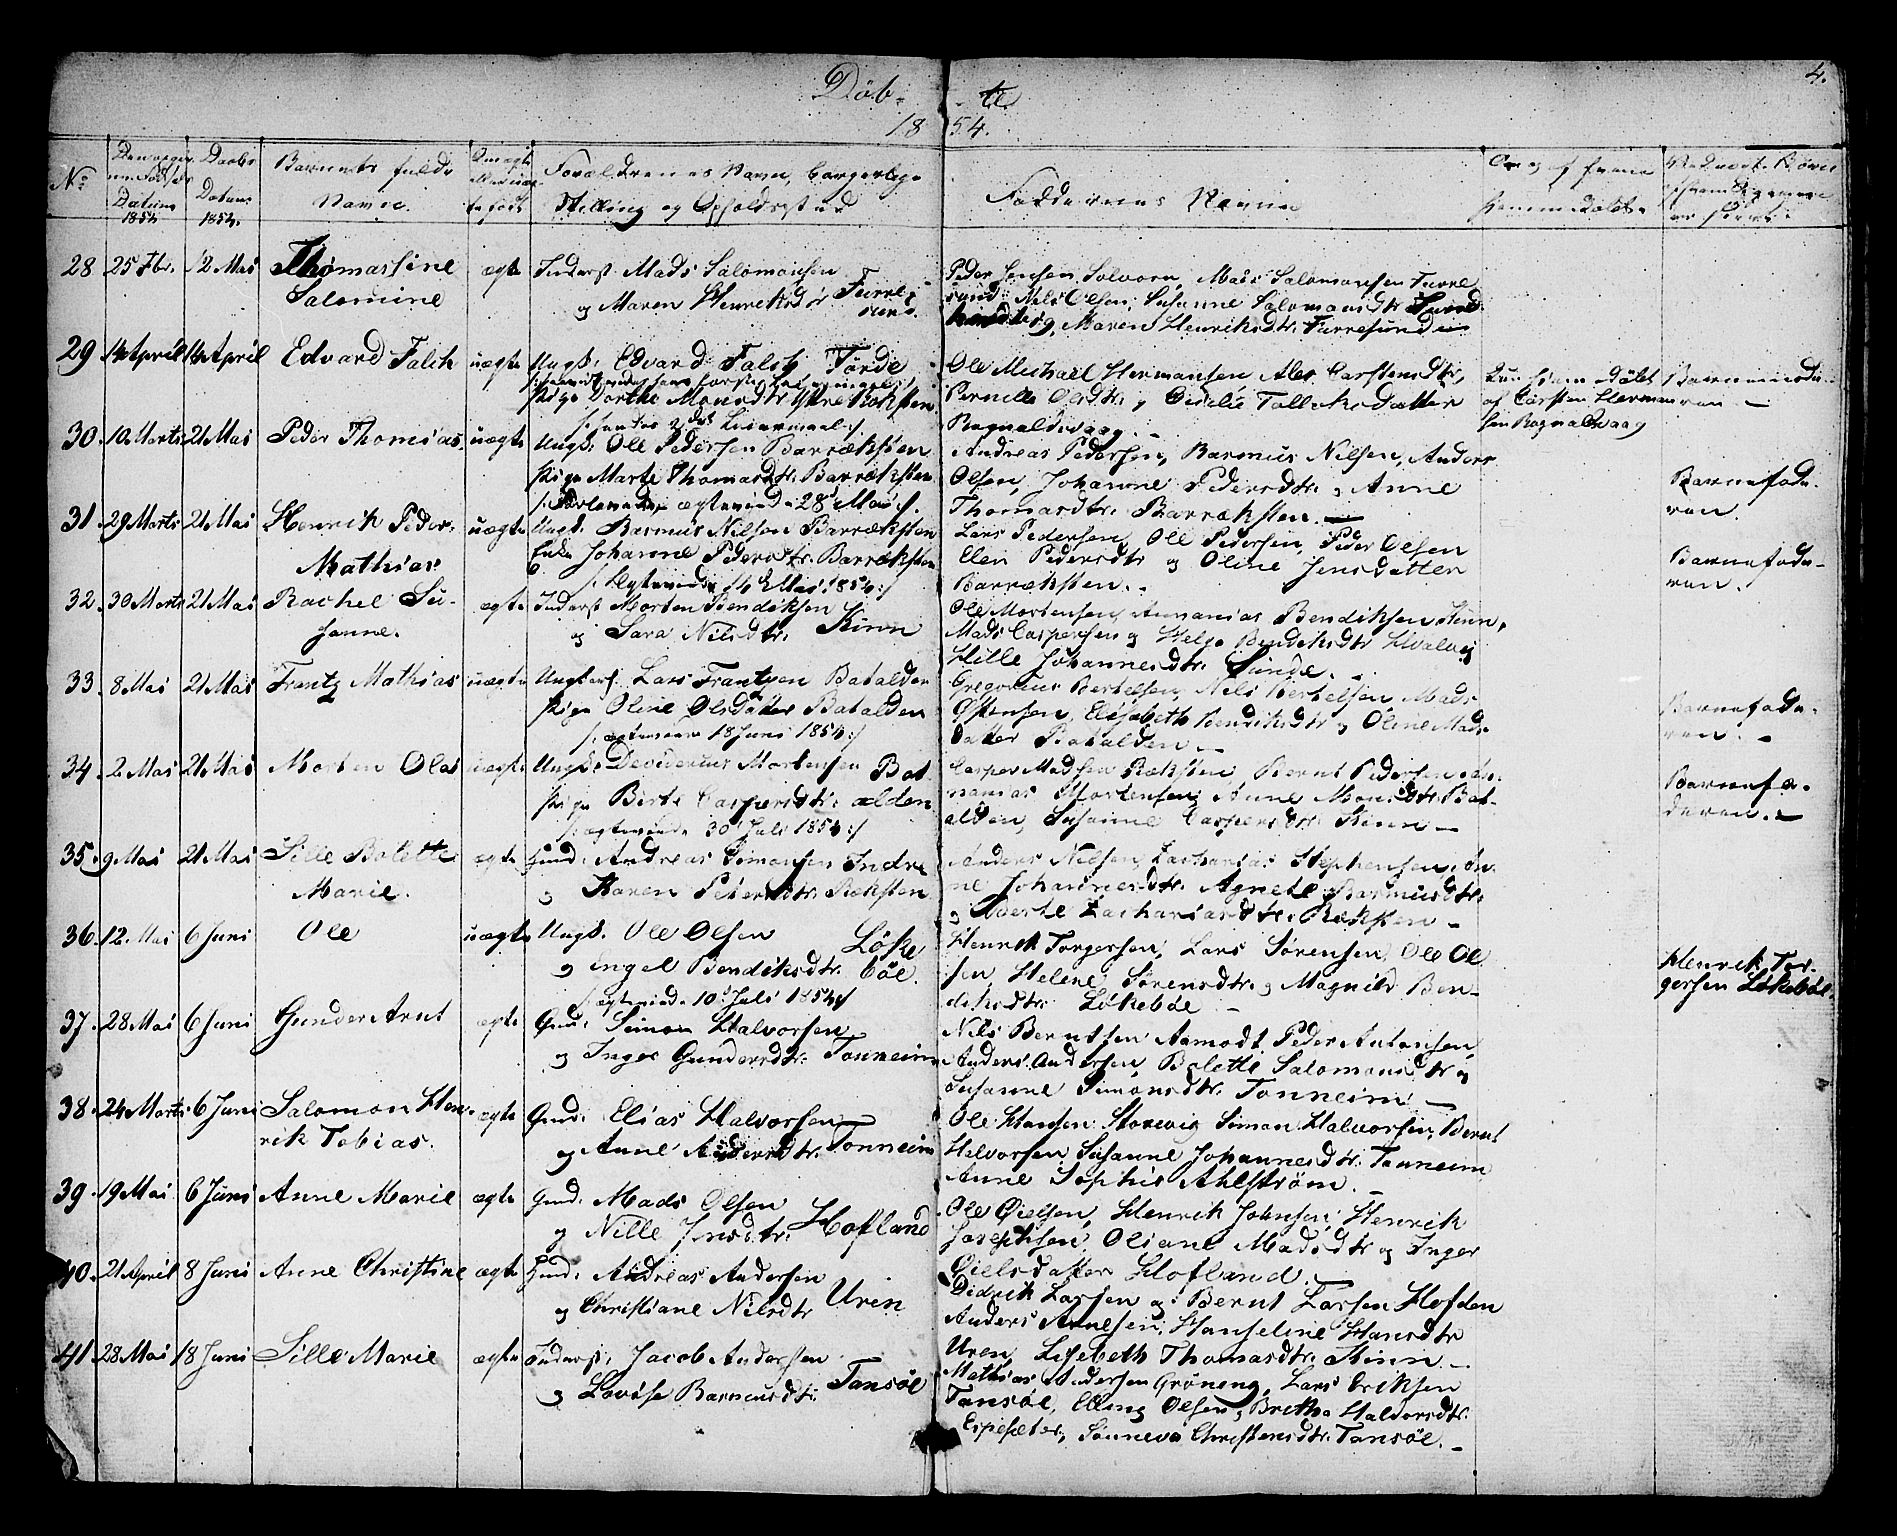 Døb- te
1854.
4.
No Datum 1854 Daabs Datum 1854. Barnets fulde Navn. Forældrenes Navn, borgerlige Stilling og Opholdssted Faddernes Navne
28 25 Fbr. 12 Mai Thomassine Salomine ægte Inderst Mads Salomonsen og Maren Henriksdtr Furresund.
Peder Jensen Solvorn, Mads Salomonsen Furre
sund Nels Olsen, Susanne Salomonsdtr
og Maren Henriksdtr. Furresund
29 14 April 14 April Edvard Falch uægte Ungk. Edvard Falch Førde
Pige Dorthe Monsdtr Ytre Røksten
Ole Michael Hermansen Ales Carstensdtr,
Pernille Olsdtr. og Cicilie Tollaksdatter
Rognaldsvaag.
hjemmedøbt af Carsten Herman
sen Rognaldsvaag
Barnemoderen
30 10 Marts 21 Mai Peder Thomas. uægte Ungk. Ole Pedersen Barræksten
Pige Marte Thomasdtr. Barræksten
ægteviede 28 Mai
Andreas Pedersen, Rasmus Nilsen, Anders
Olsen, Johanne Pedersdtr. og Anne
Thomasdtr. Barræksten.
Barnefaderen.
31 29 Marts 21 Mai Henrik Peder Mathias uægte Ungk. Rasmus Nilsen Barræksten
Enke Johanne Pedersdtr. Barræksten
/: Ægteviede 14 Mai 1854 :/
Lars Pedersen, Ole Pedersen, Peder Olsen
Elen Pedersdtr og Oline Jensdatter
Barræksten.
Barnefaderen.
32 30 Marts 21 Mai Rachel Susanne. ægte Inderst Morten Bendiksen
og Sara Nilsdtr. Kinn
Ole Mortensen, Annanias Bendiksen Kinn,
Mads Caspersen og Helge Bendiksdtr
Hille Johannesdtr. Sunde.
33 8 Mai 21 Mai Frantz Mathias uægte Lars Frantzen Batalden
Pige Oline Olsdatter Batalden
/: ægteviede 18 Juni 1854 :/
Gregorius Bertelsen, Nils Bertelsen, Mads
Østensen, Elisabeth Henriksdtr og Oline Mads
datter Batalden
Barnefaderen.
34 2 Mai 21 Mai Morten Olai uægte Ungk. Mortensen Batalden
Pige Birte Caspersdtr.
/: ægteviede 30 Juli 1854 :/
Casper Madsen Ræksten, Bernt Pedersen An-
nanias Mortensen, Anne Monsdtr. Bat-
alden, Susanne Caspersdtr. Kinn
Barnefaderen.
35. 9 Mai 21 Mai Sille Bolette Marie. ægte Gmd. Andreas Simonsen Indre
og Karen Petersdtr. Ræksten
Anders Nilsen, Zacharias Stephensen, An-
ne Johannesdtr. Agnete Rasmusdtr.
og Berte Zachariasdtr. Ræksten
36. 12. Mai 6 Juni Ole uægte Ungk. Ole Olsen Løke
og Ingel Bendiksdtr. bøe.
/: ægteviede 10 Juli 1854 :/
Henrik Torgersen, Lars Sørensen, Ole Ol
sen Helene Sørensdtr. og Magnild Ben-
diksdtr Løkebøe
Henrik Tor-
gersen Løkebøe
37. 28 Mai 6 Juni Gunder Arnt ægte Gmd. Simon Halvorsen
og Inger Gundersdtr. Tonneim
Nils Berntsen Aamodt, Peder Antonsen,
Anders Andersen, Bolette Salomonsdtr og
Susanne Simonsdtr. Tonneim
38. 24 Marts 6 Juni Salomon Hen-
rik Tobias. ægte Gmd. Elias Halvorsen
og Anne Andersdtr. Tonneim
Ole Hansen Storevig Simon Halvorsen, Bernt
Halvorsen Susanne Johannesdtr. Tonneim
Anne Sophie Ahlstrøm.
39. 19 Mai 6 Juni Anne Marie ægte Gmd. Mads Olsen
og Nille Jensdtr. Hofland
Ole Øielsen, Henrik Johnsen, Henrik
Josephsen, Oliane Madsdtr og Inger
Øielsdatter Hofland.
40. 21 April 8 Juni Anne Christine ægte Gmd. Andreas Andersen
og Christiane Nilsdtr Uren
Didrik Larsen og Bernt Larsen Hofden
Anders Arnesen, Hanseline Hansdtr
Uren, Lisebeth Thomasdtr. Kinn.
41 28 Mai 18 Juni Sille Marie ægte Inderst. Jacob Andersen
og Lovise Rasmusdtr. Tansøe
Mathias Andersen Grøneng, Lars Eriksen
Tansøe, Elling Olsen, Brithe Halvorsdtr.
Espesæter, Sønneva Christensdtr. Tansøe.